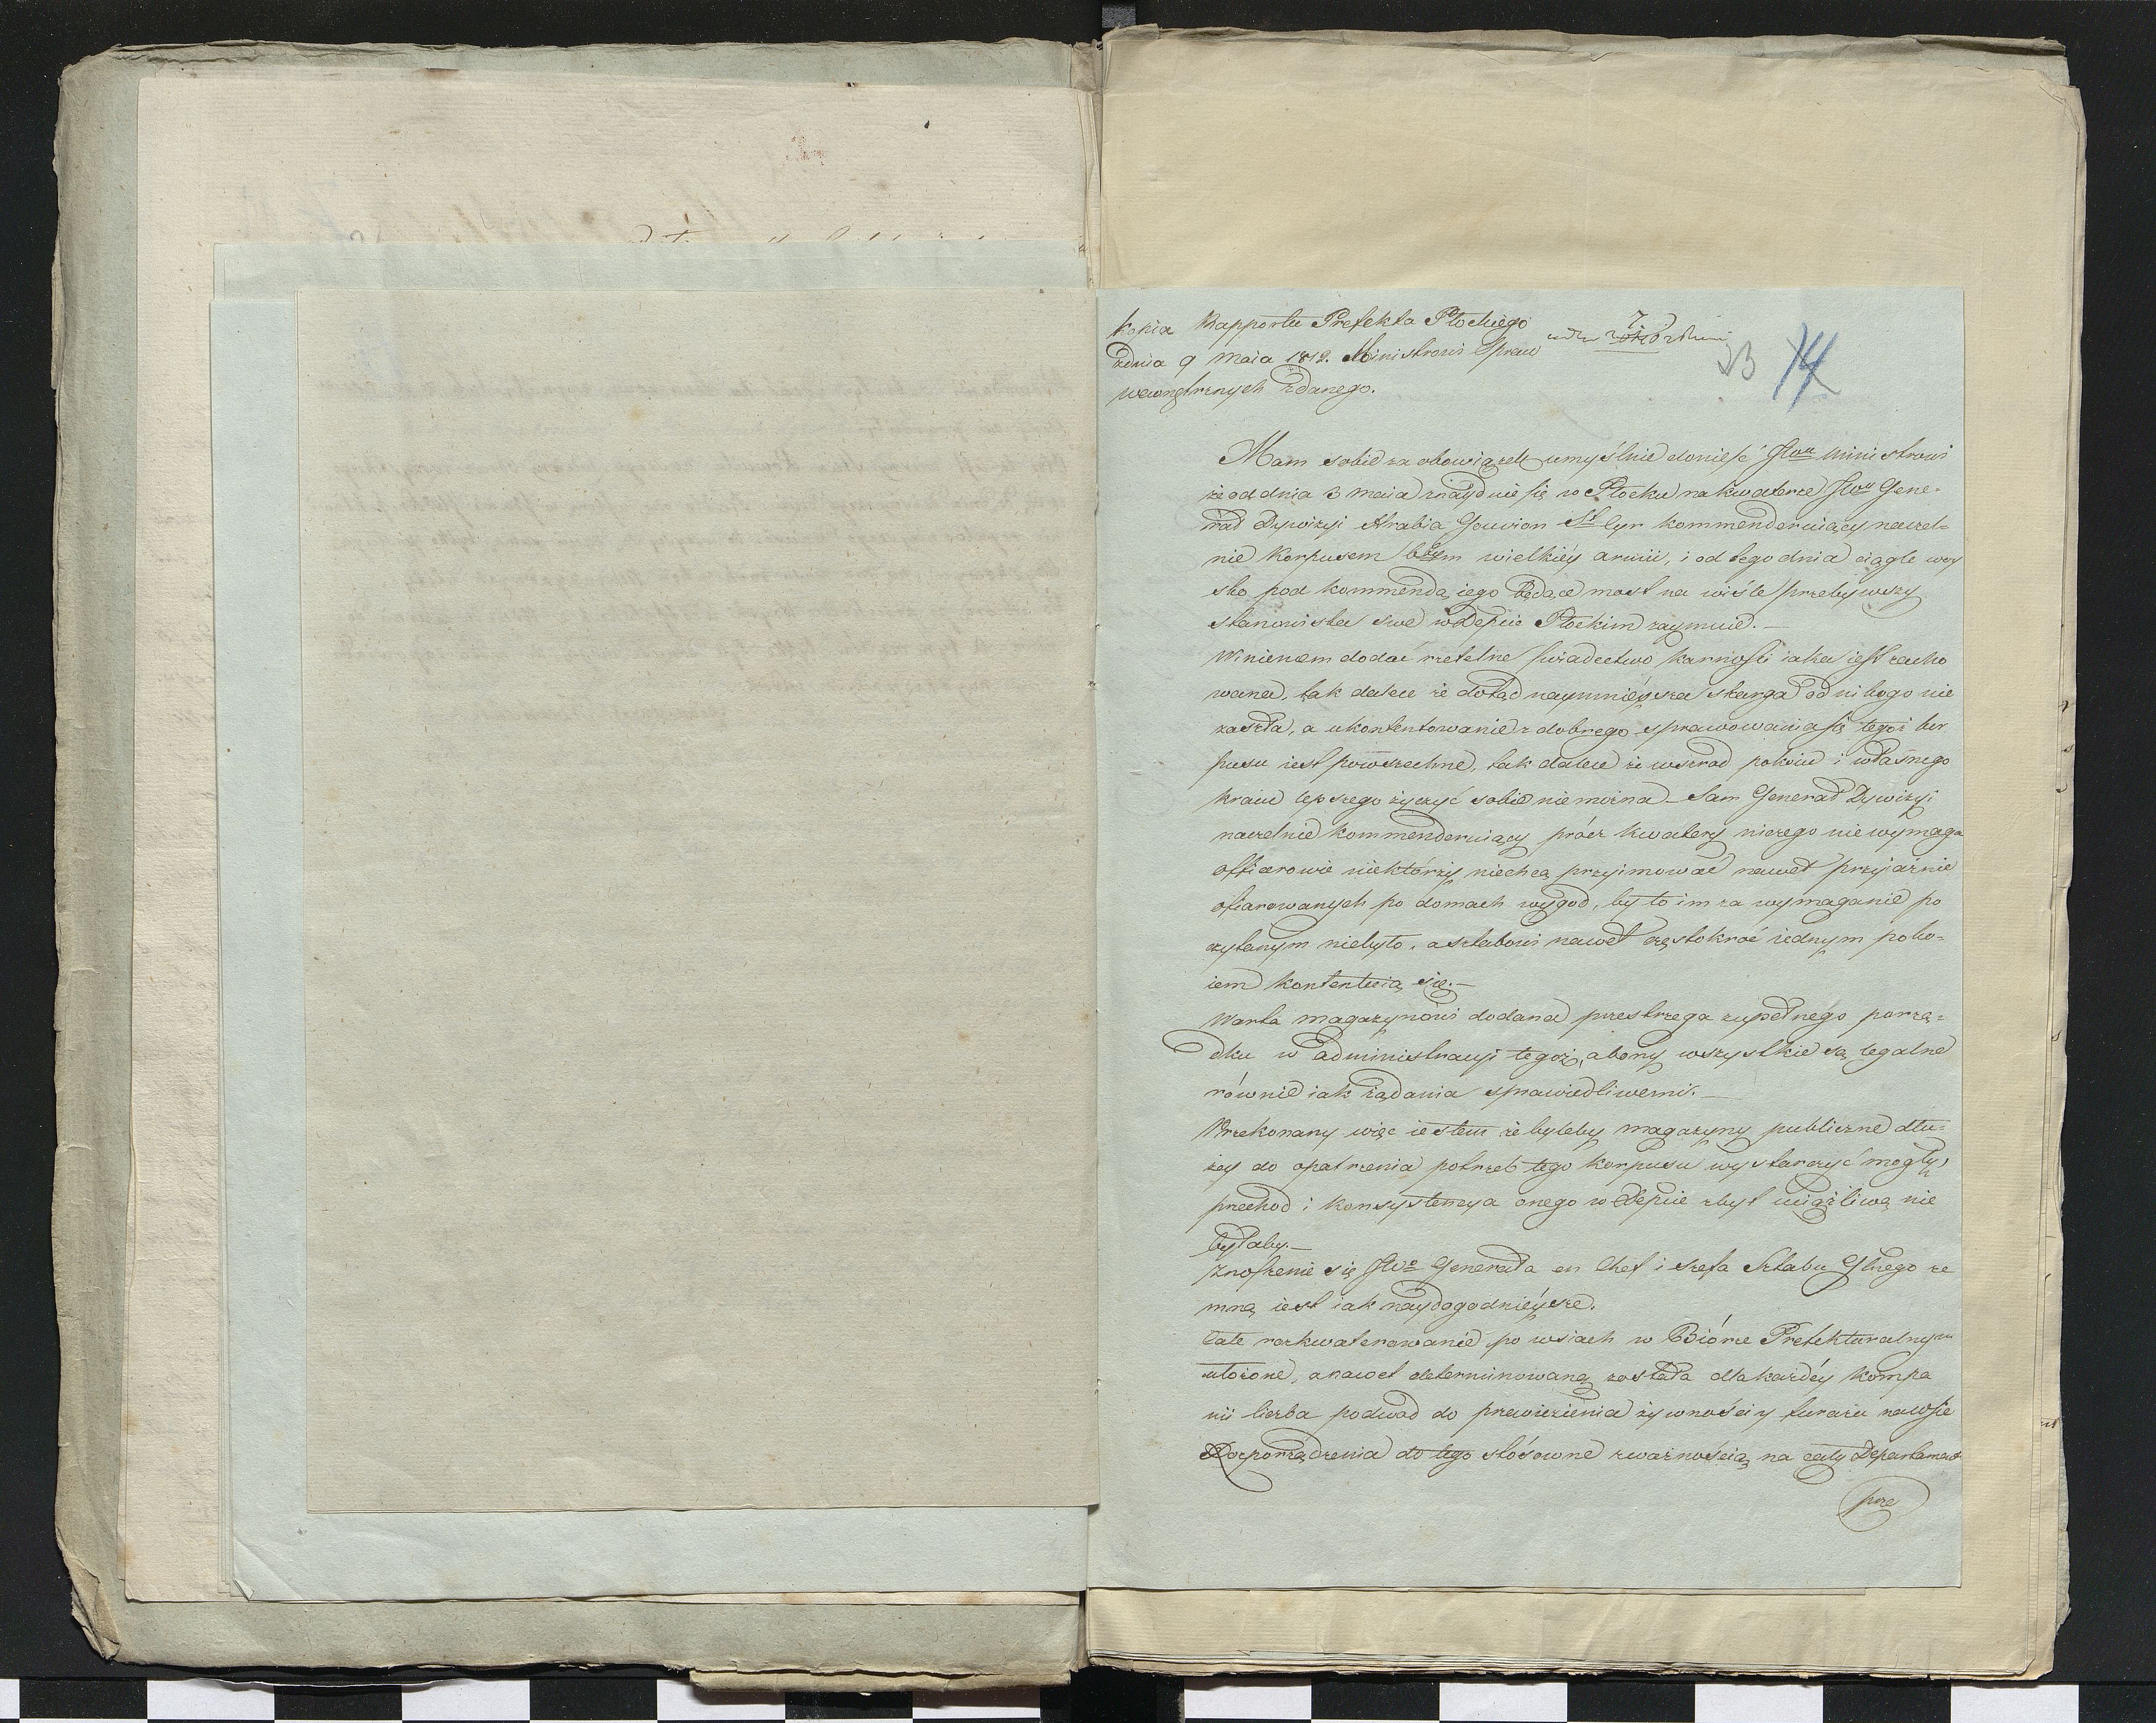 Kopia Rapportu Prefekta Płockiego
zdnia 9 Maia 1812. Ministrowi Spraw
wewnętrznych zdanego.
7
33 14
Mam sobie za obowiązek umyślnie donieść JWu Ministrowi
że od dnia 3 maia znayduie się w Płocku na kwaterze JWu Gene-
rał Dywizyi Hrabia Gouvion St Cyr kommenderuiący naczel-
nie Korpusem 6tym wielkiéy armii, i od tego dnia ciągle woy
sko pod kommendą iego będące most na wiśle przebywszy
stanowiska swe w Depcie Płockim zaymuie.—
Winienem dodać rzetelne świadectwo karności iaka iest zacho
wana, tak dalece że dotąd naymnieysza skarga od nikogo nie
zaszła, a ukontentowanie z dobrego sprawowania się tegoż kor
pusu iest powszechne, tak dalece że wszrod pokoiu i własnego
kraiu lepszego życzyć sobie nie można — Sam Generał Dywizyi
naczelnie kommenderuiący prócz kwatery niczego nie wymaga
officerowie niektórzy niechcą przyimować nawet przyiaźnie
ofiarowanych po domach wygod, by to im za wymaganie po
czytanym niebyło, a sztabowi nawet częstokroć iednym poko-
iem kontentuią się.—
Warta magazynowi dodana przestrzega zupełnego porzą-
dku w administracyi tegoż, abony wszystkie są legalne
równie iak żądania sprawiedliwemi.—
Przekonany więc iestem że byleby magazyny publiczne dłu-
żey do opatrzenia potrzeb tego korpusu wystarczyć mogły,
przechod i konsystencya onego w Depcie zbyt uciążliwą nie
byłaby.—
Znoszenie się JWo Generała en Chef i szefa Sztabu Głnego ze
mną iest iak naydogodnieysze.
Całe rozkwaterowanie po wsiach w Biórze Prefekturalnym
ułożone, a nawet determinowaną została dla każdéy kompa
nii liczba podwod do przewiezienia żywności y furażu na wsie
Rozporządzenia do tego stósowne zważnością na cały Departament
prze